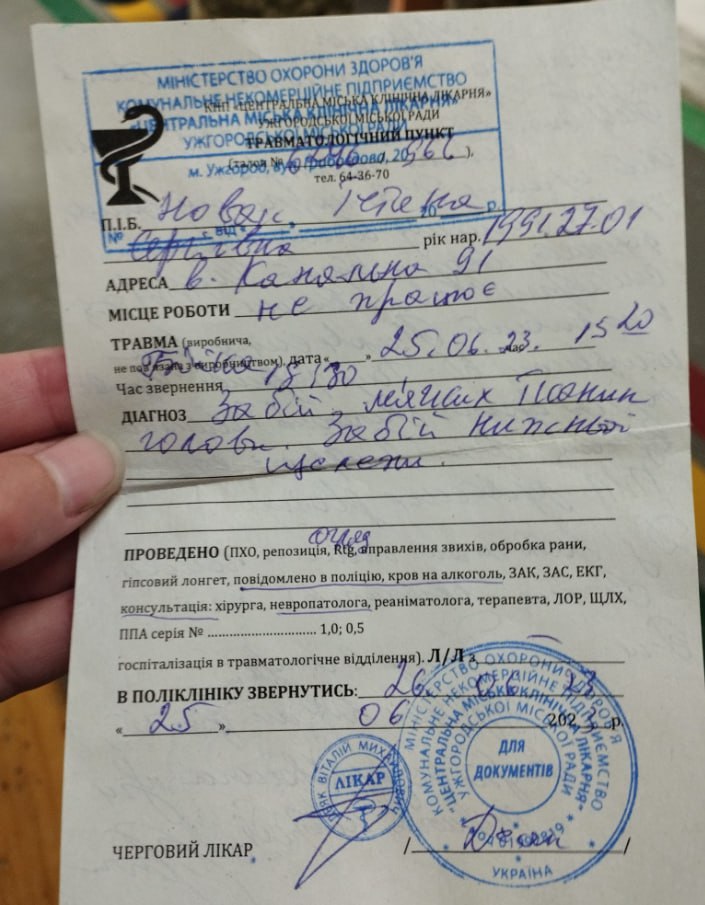 МІНІСТЕРСТВО ОХОРОНИ ЗДОРОВ'Я
КОМУНАЛЬНЕ НЕКОМЕРЦІЙНЕ ПІДПРИЄМСТВО
«ЦЕНТРАЛЬНА МІСЬКА КЛІНІЧНА ЛІКАРНЯ»
УЖГОРОДСЬКОЇ МІСЬКОЇ РАДИ
КНП «ЦЕНТРАЛЬНА МІСЬКА КЛІНІЧНА ЛІКАРНЯ»
УЖГОРОДСЬКОЇ МІСЬКОЇ РАДИ
ТРАВМАТОЛОГІЧНИЙ ПУНКТ
(талон №
м. Ужгород, вул. Грибоєдова, 20
тел. 64-36-70
П.І.Б. Новак
№ від 20 р.
Сергіївна рік нар. 1991.27.01
АДРЕСА в. Канальна 91
МІСЦЕ РОБОТИ не працює
ТРАВМА (виробнича,
не пов'язана з виробництвом), дата « » 25.06.23. час 15 20
Час звернення 18 30
ДІАГНОЗ Забій мягких тканин
голови. Забій нижньої
щелепи.
огляд
ПРОВЕДЕНО (ПХО, репозиція, Rtg, вправлення звихів, обробка рани,
гіпсовий лонгет, повідомлено в поліцію, кров на алкоголь, ЗАК, ЗАС, ЕКГ,
консультація: хірурга, невропатолога, реаніматолога, терапевта, ЛОР, ЩЛХ,
ППА серія № ................................ 1,0; 0,5
госпіталізація в травматологічне відділення). Л/Л з
В ПОЛІКЛІНІКУ ЗВЕРНУТИСЬ: 26. 06 23
« 25 » 06 2023 р.
МІНІСТЕРСТВО ОХОРОНИ ЗДОРОВ'Я
КОМУНАЛЬНЕ НЕКОМЕРЦІЙНЕ ПІДПРИЄМСТВО
"ЦЕНТРАЛЬНА МІСЬКА КЛІНІЧНА ЛІКАРНЯ"
УЖГОРОДСЬКОЇ МІСЬКОЇ РАДИ
ДЛЯ
ДОКУМЕНТІВ
УКРАЇНА
ВІТАЛІЙ МИХАЙЛОВИЧ
ЛІКАР
ЧЕРГОВИЙ ЛІКАР / /